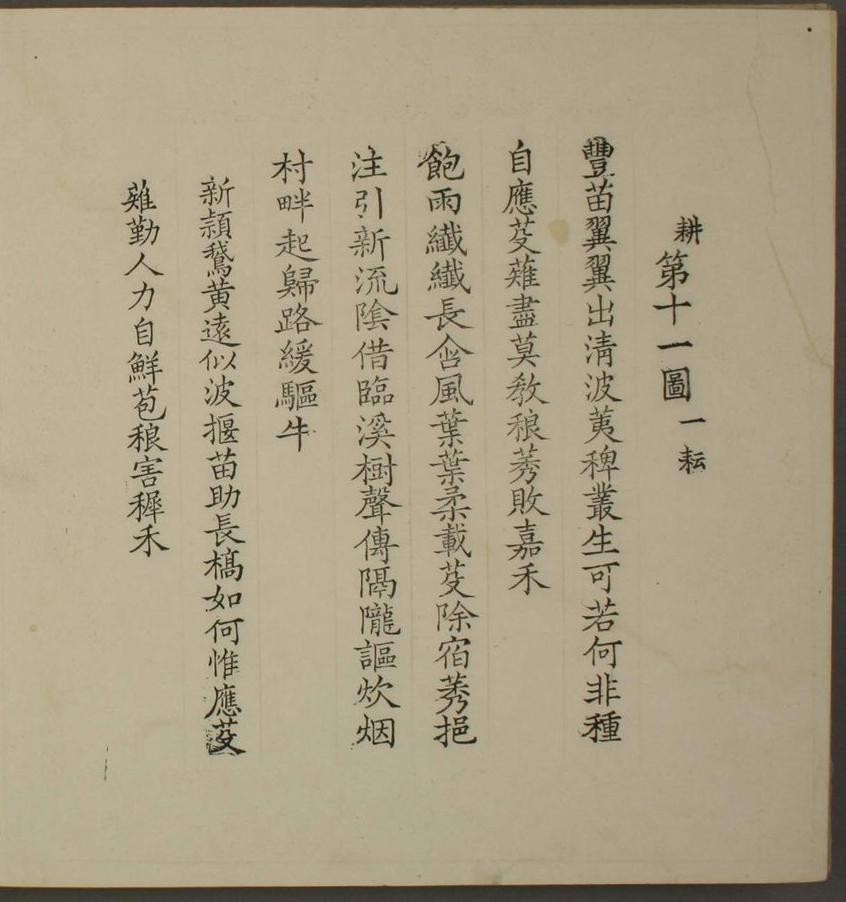 耕第十一圖一耘
豐苗翼翼出清波荑稗叢生可若何非種
自應芟薙盡莫教稂莠敗嘉禾
飽雨纖纖長含風葉葉柔載芟除宿莠挹
注引新流陰借臨溪樹聲傳隔隴謳炊烟
村畔起歸路緩驅牛
新頴鵞黄遠似波揠苗助長槁如何惟應芟
薙勤人力自鮮苞稂害穉禾